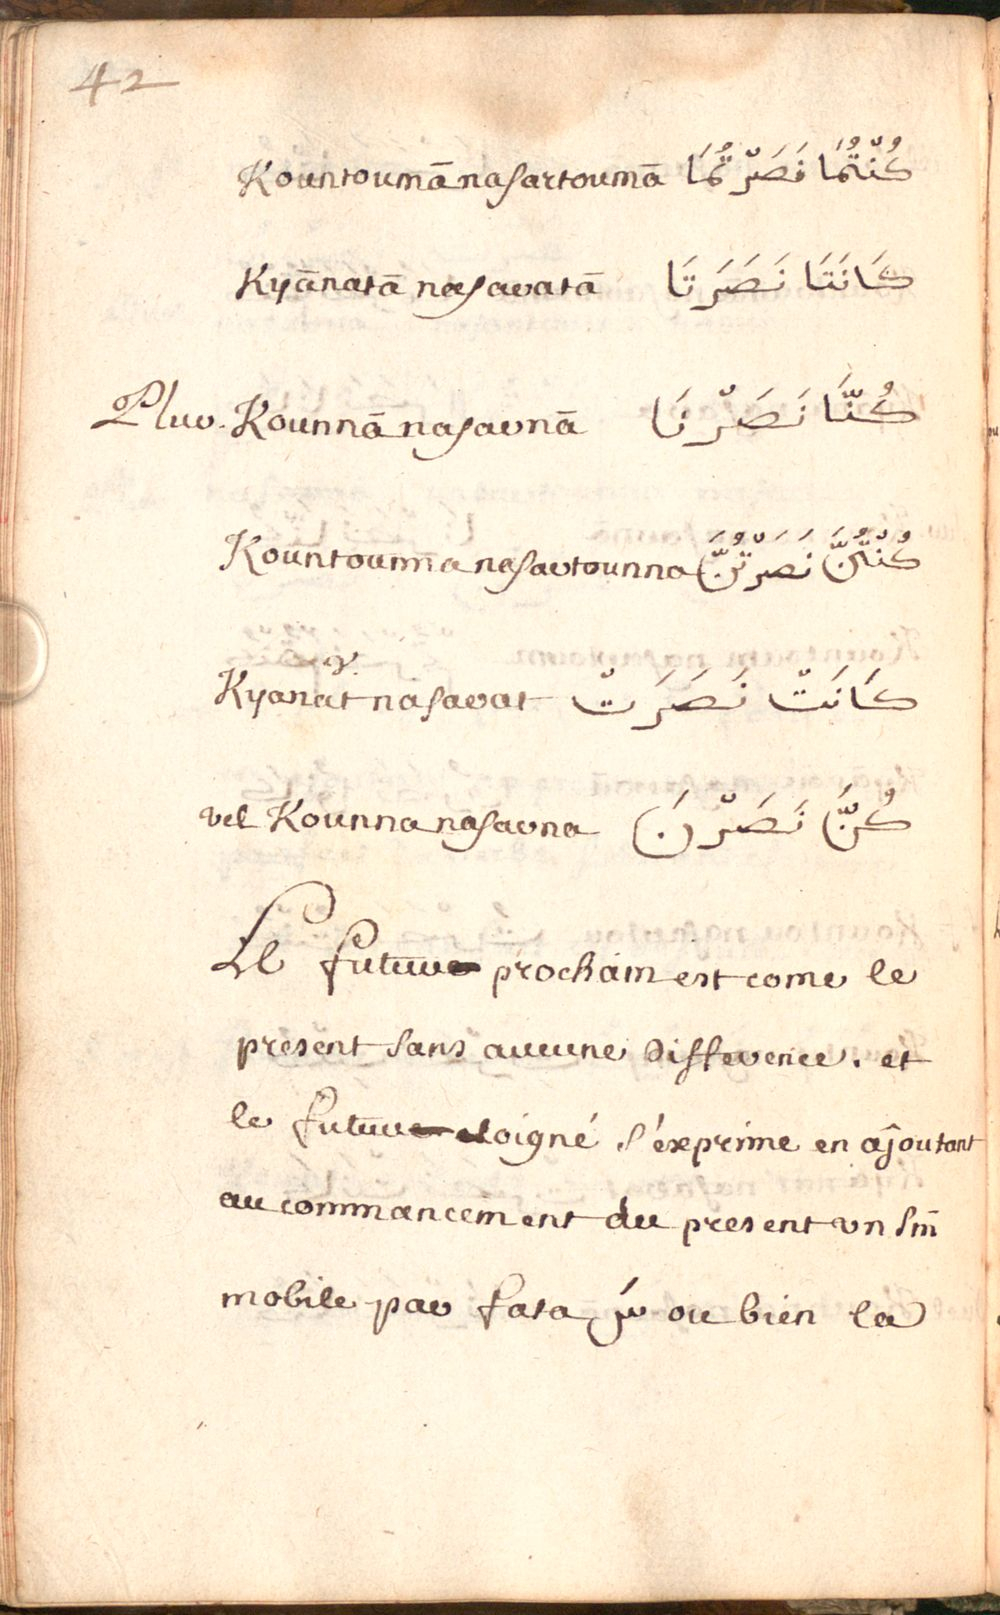 42
Kountoumā nasartoumā كُنْتُمَا نَصَرْتُمَا
Kyānatā nasaratā كَانَتَا نَصَرَتَا
Plur. Kounnā nasarnā كُنَّا نَصَرْنَا
Kountounna nasartounna كُنْتُنَّ نَصَرْتُنَّ
Kyanat nasarat كَانَتْ نَصَرَتْ
vel Kounna nasarna كُنَّ نَصَرْنَ
Le futur prochain est come le
present sans aucune difference. et
le futur eloigné s'exprime en ajoutant
au commancement du present vn sin
mobile par fata سَ ou bien la